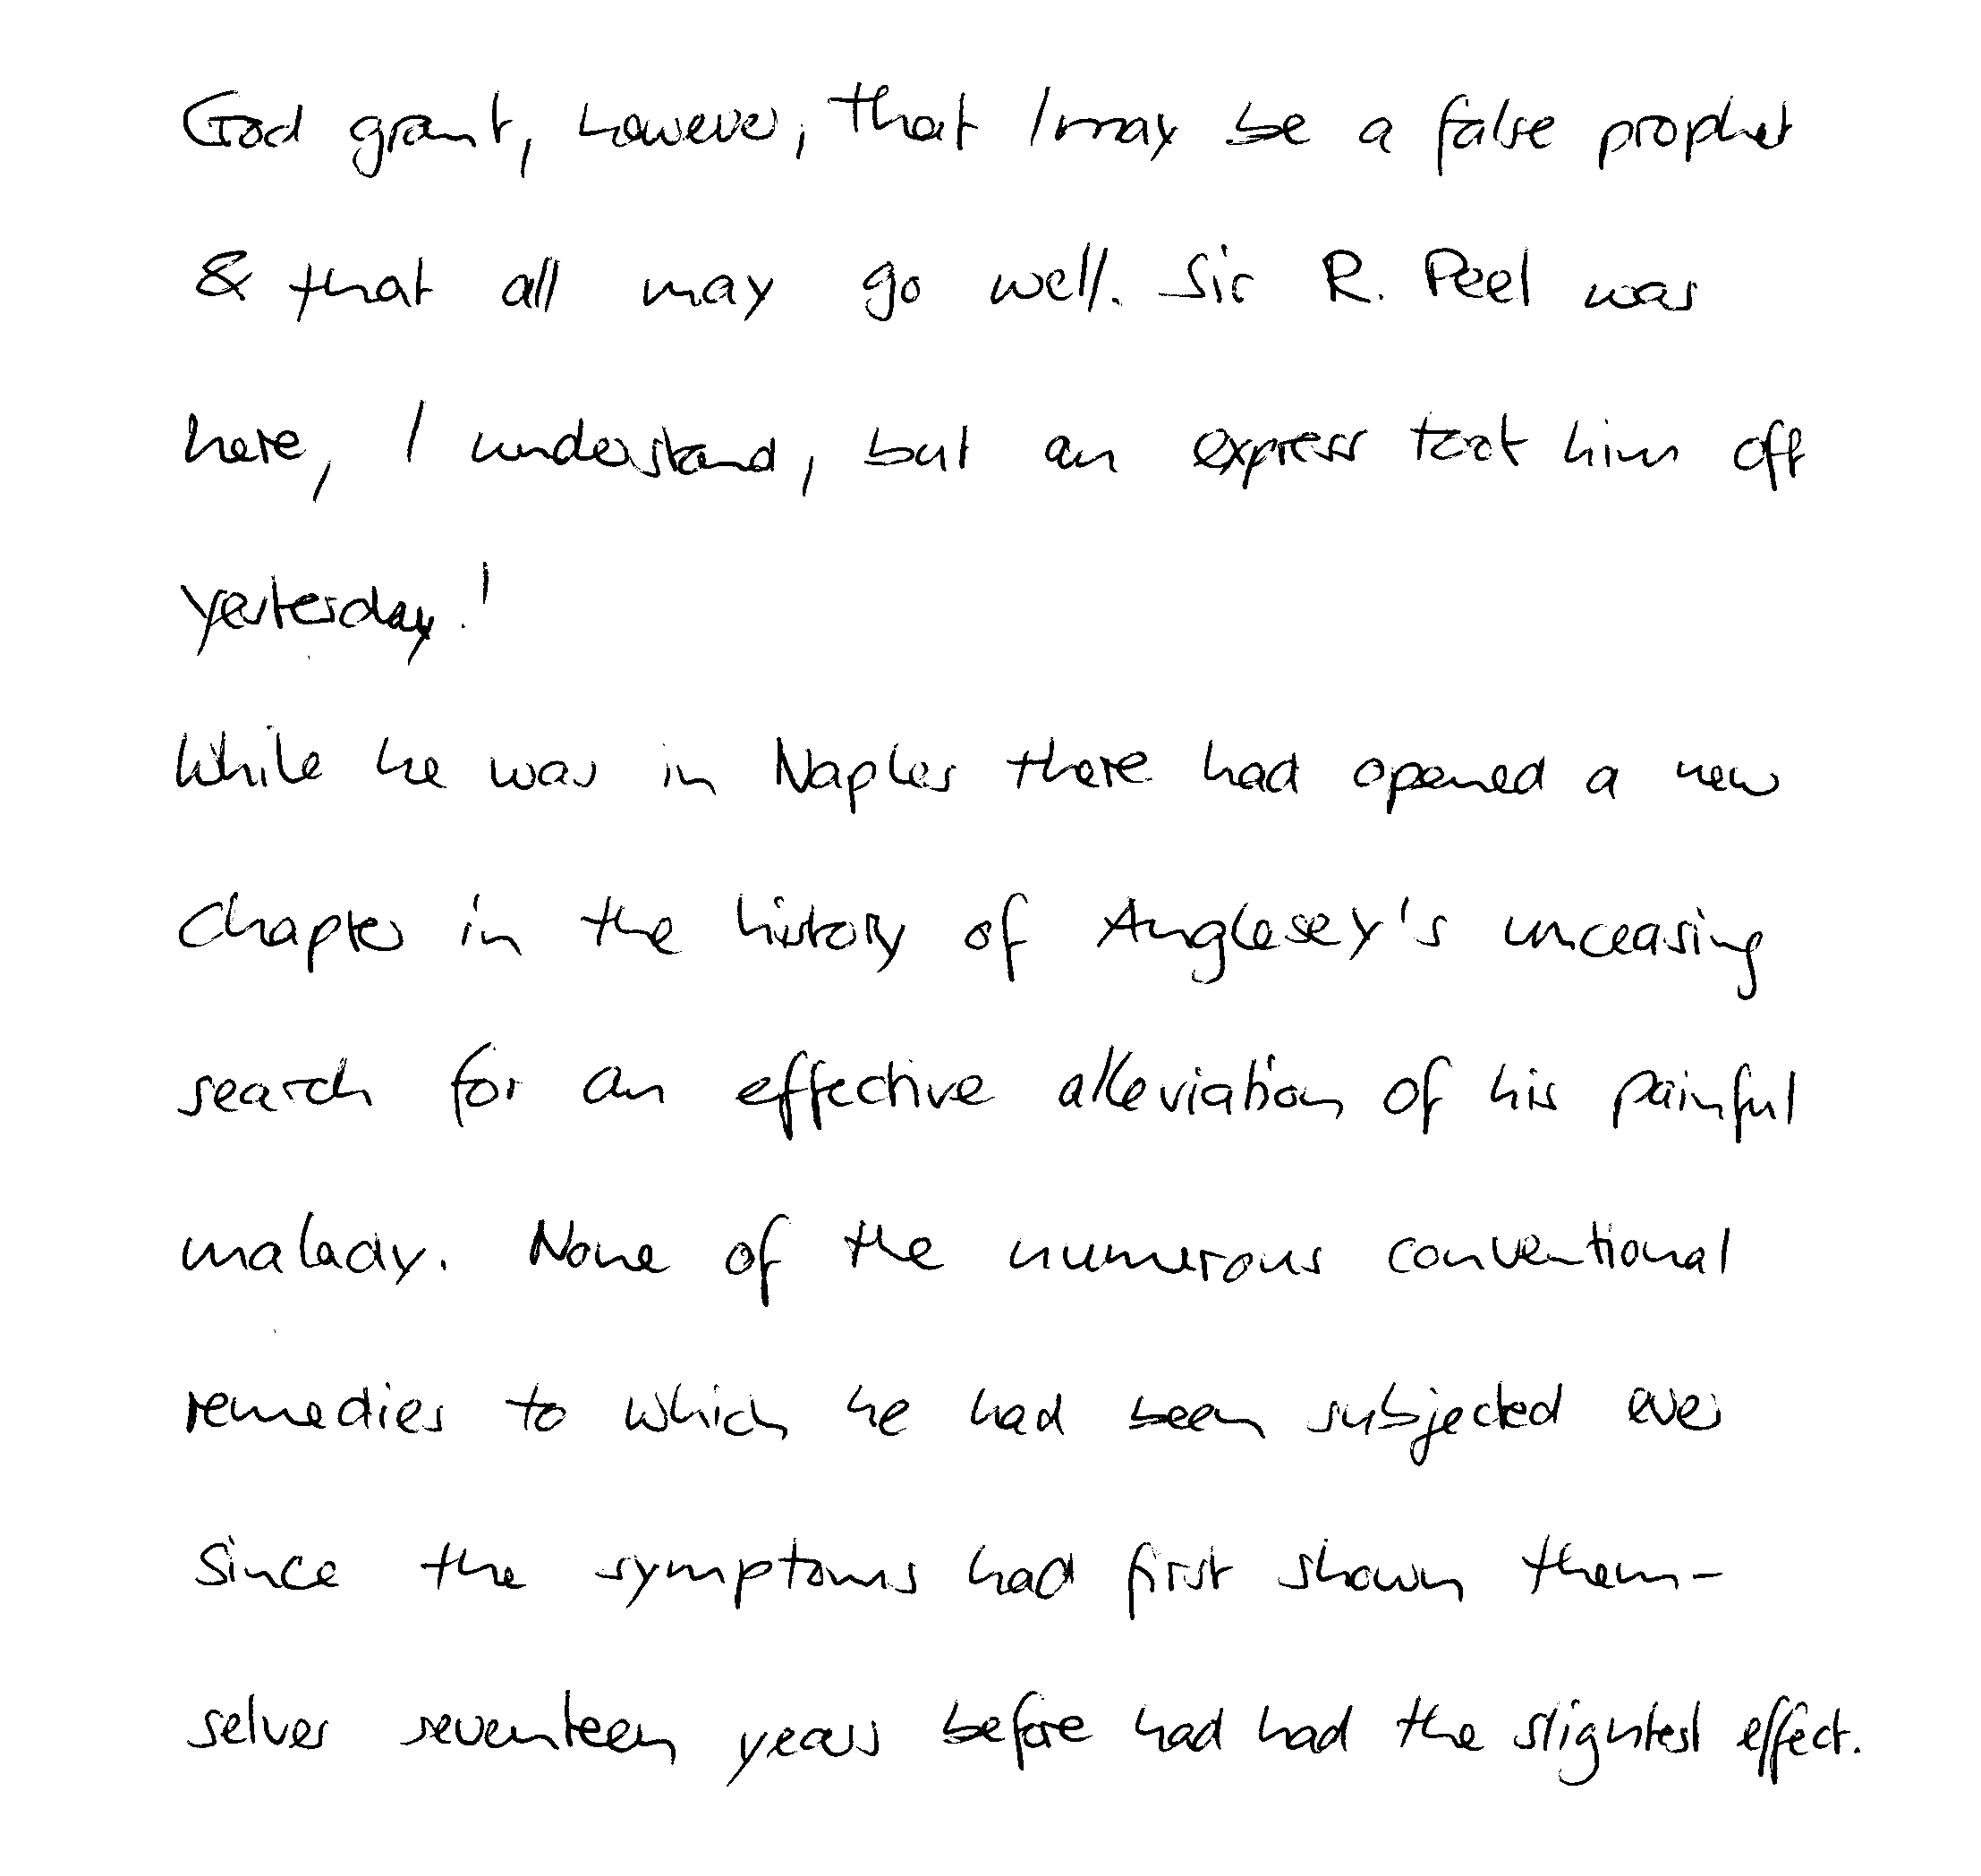 God grant, however, that I may be a false prophet
& that all may go well. Sir R. Peel was
here, I understand, but an express took him off
yesterday!
While he was in Naples there had opened a new
chapter in the history of Anglesey's unceasing
search for an effective alleviation of his painful
malady. None of the numerous conventional
remedies to which he had been subjected ever
since the symptoms had first shown them-
selves seventeen years before had had the slightest effect.